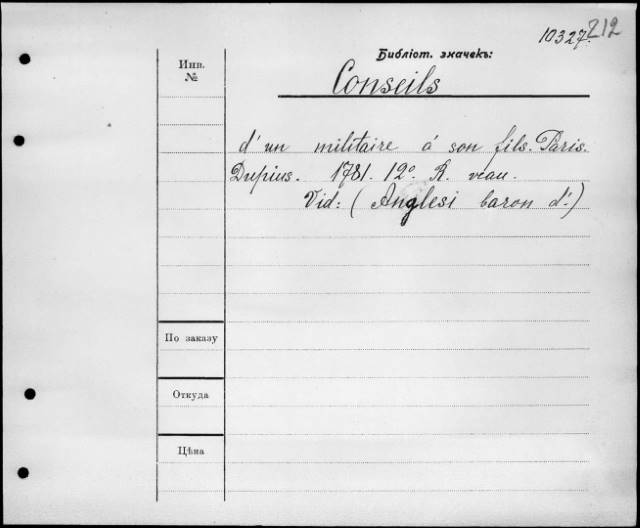 10327. 212
Библіот. значекъ:
Инв.
№
Conseils
d'un militaire á son fils. Paris.
Dupius. 1781. 12º. R. veau.
Vid: (Anglesi baron d'.)
По заказу
Откуда
Цѣна